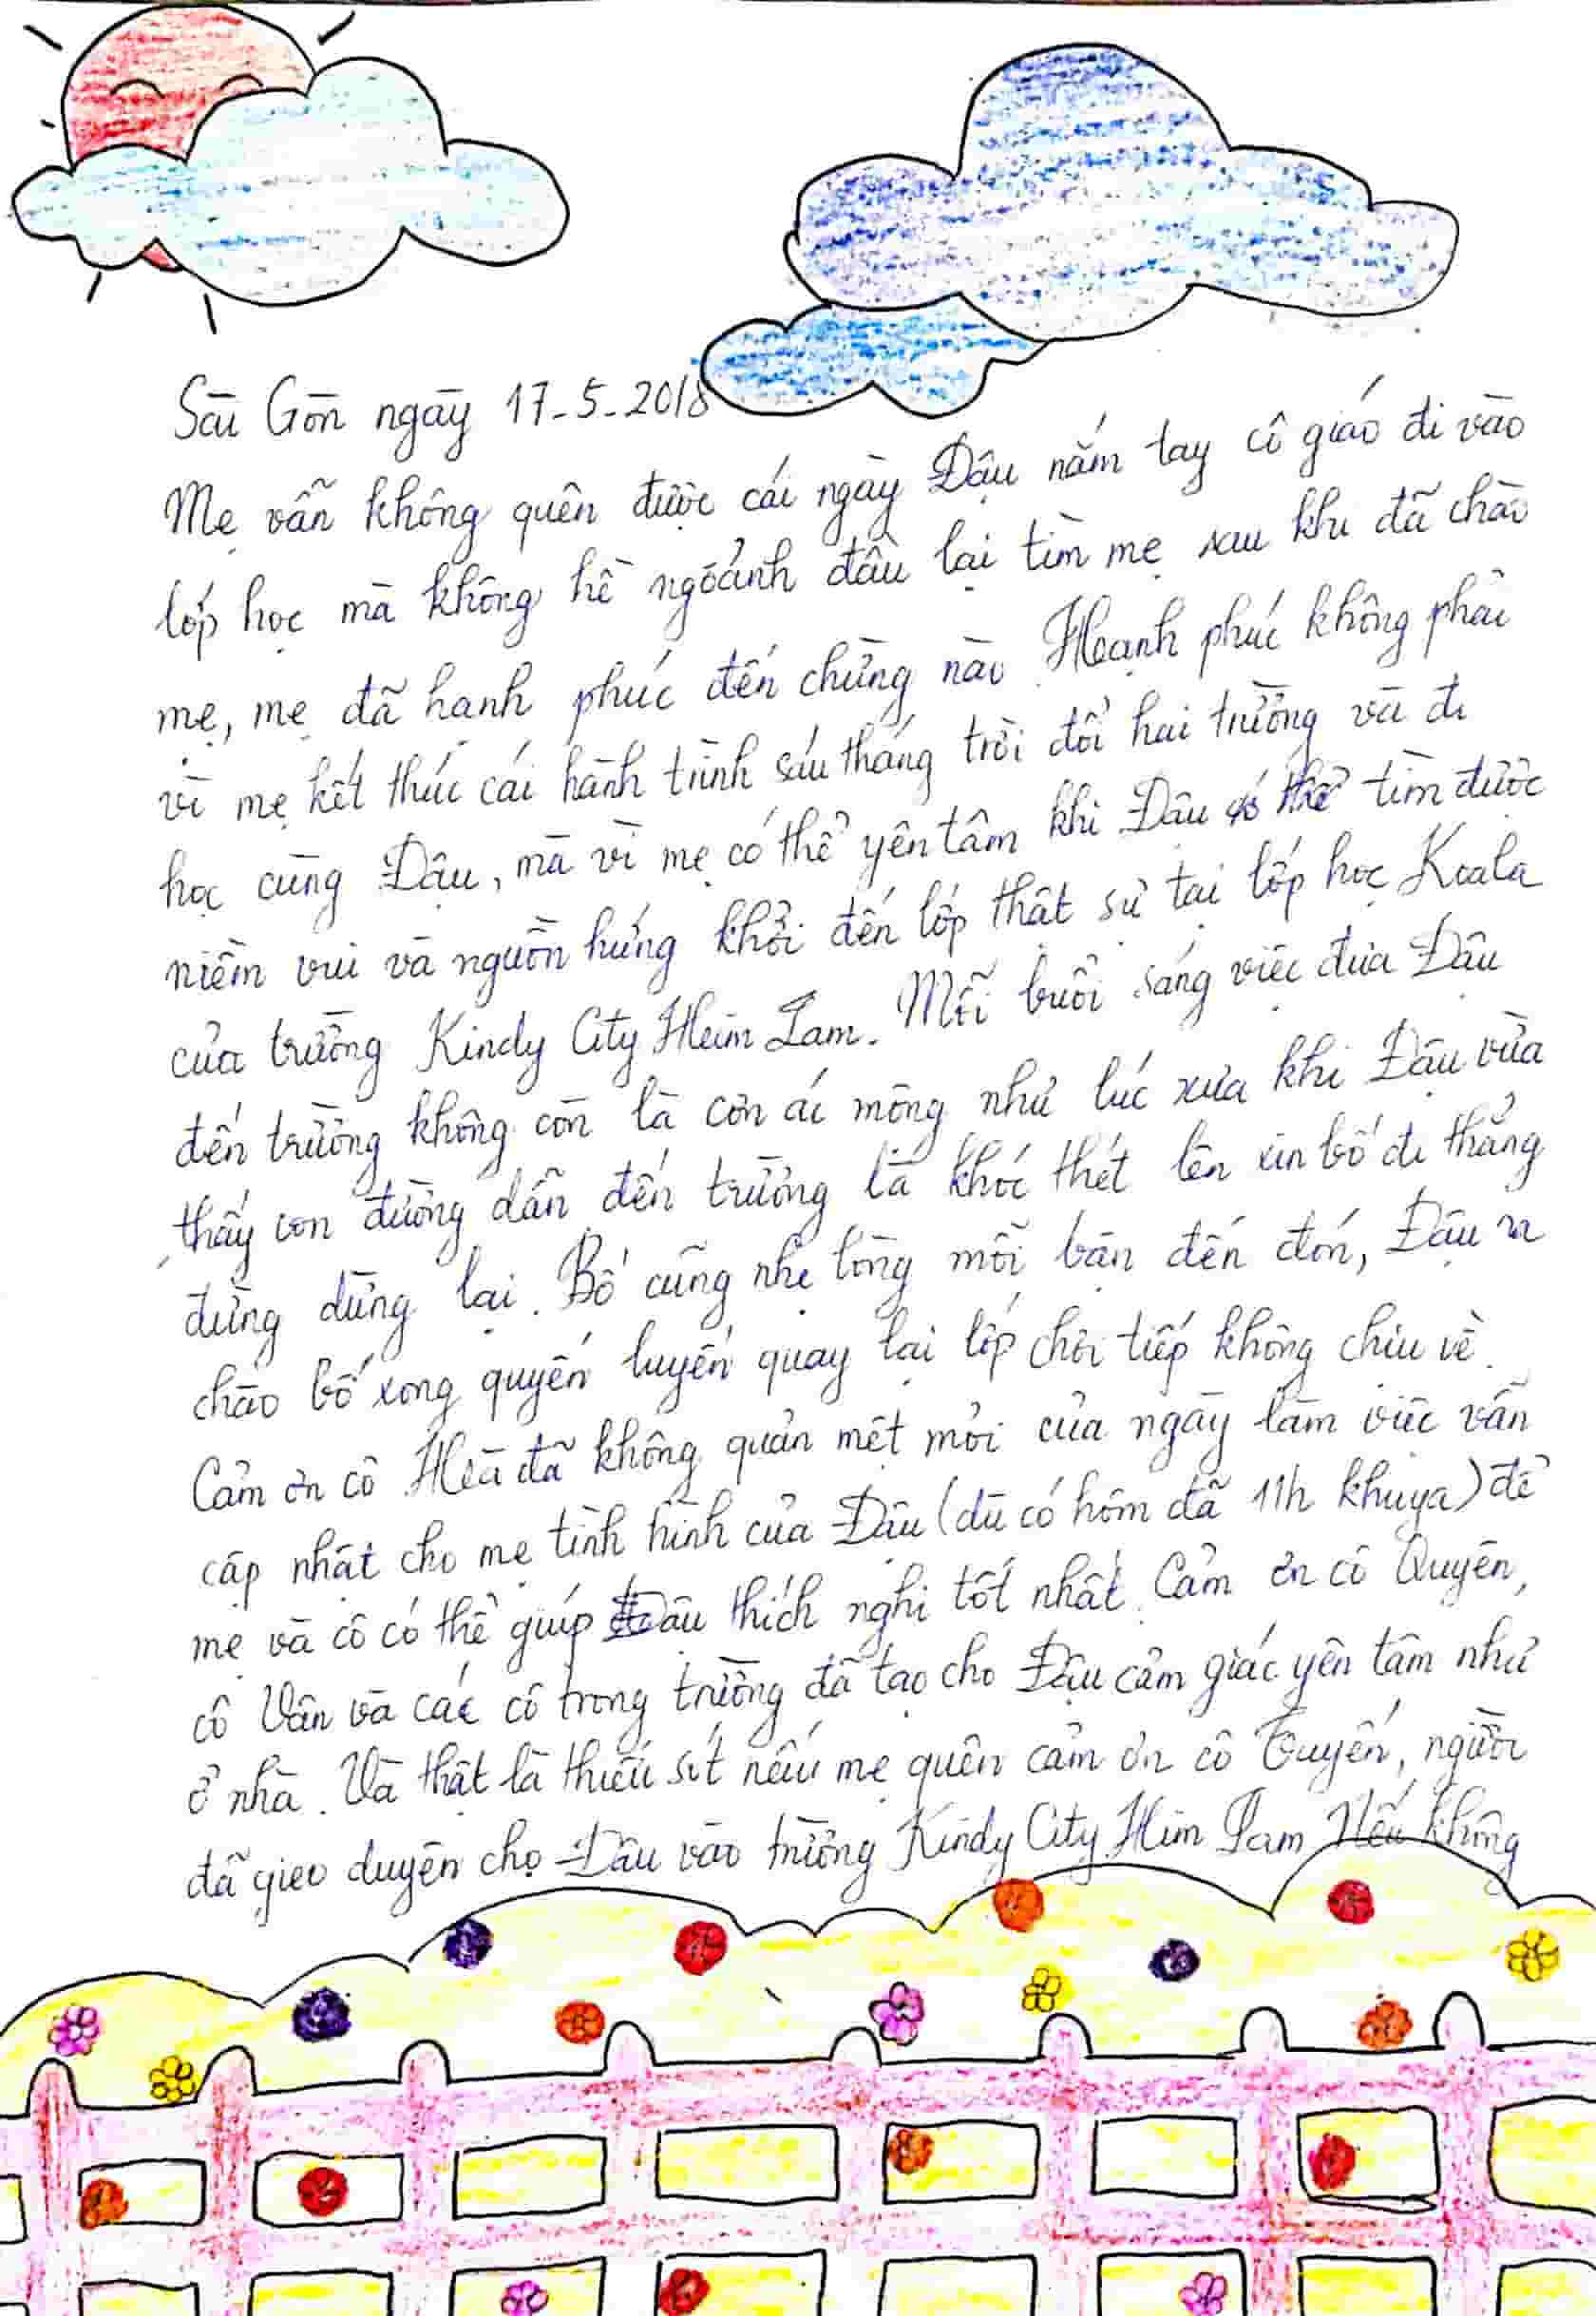 Sài Gòn ngày 17-5-2018
Mẹ vẫn không quên được cái ngày Đậu nắm tay cô giáo đi vào
lớp học mà không hề ngoảnh đầu lại tìm mẹ sau khi đã chào
mẹ, mẹ đã hạnh phúc đến chừng nào. Hạnh phúc không phải
vì mẹ kết thúc cái hành trình sáu tháng trời đổi hai trường và đi
học cùng Đậu, mà vì mẹ có thể yên tâm khi Đậu có thể tìm được
niềm vui và nguồn hứng khởi đến lớp thật sự tại lớp học Koala
của trường Kindy City Him Lam. Mỗi buổi sáng việc đưa Đậu
đến trường không còn là cơn ác mộng như lúc xưa khi Đậu vừa
thấy con đường dẫn đến trường là khóc thét lên xin bố đi thẳng
đừng dừng lại. Bố cũng nhẹ lòng mỗi bận đến đón, Đậu ra
chào bố xong quyến luyến quay lại lớp chơi tiếp không chịu về.
Cảm ơn cô Hoà đã không quản mệt mỏi của ngày làm việc vẫn
cập nhật cho mẹ tình hình của Đậu (dù có hôm đã 11h khuya) để
mẹ và cô có thể giúp Đậu thích nghi tốt nhất. Cảm ơn cô Quyên,
cô Vân và các cô trong trường đã tạo cho Đậu cảm giác yên tâm như
ở nhà. Và thật là thiếu sót nếu mẹ quên cảm ơn cô Tuyến, người
đã gieo duyên cho Đậu vào trường Kindy City Him Lam. Nếu không